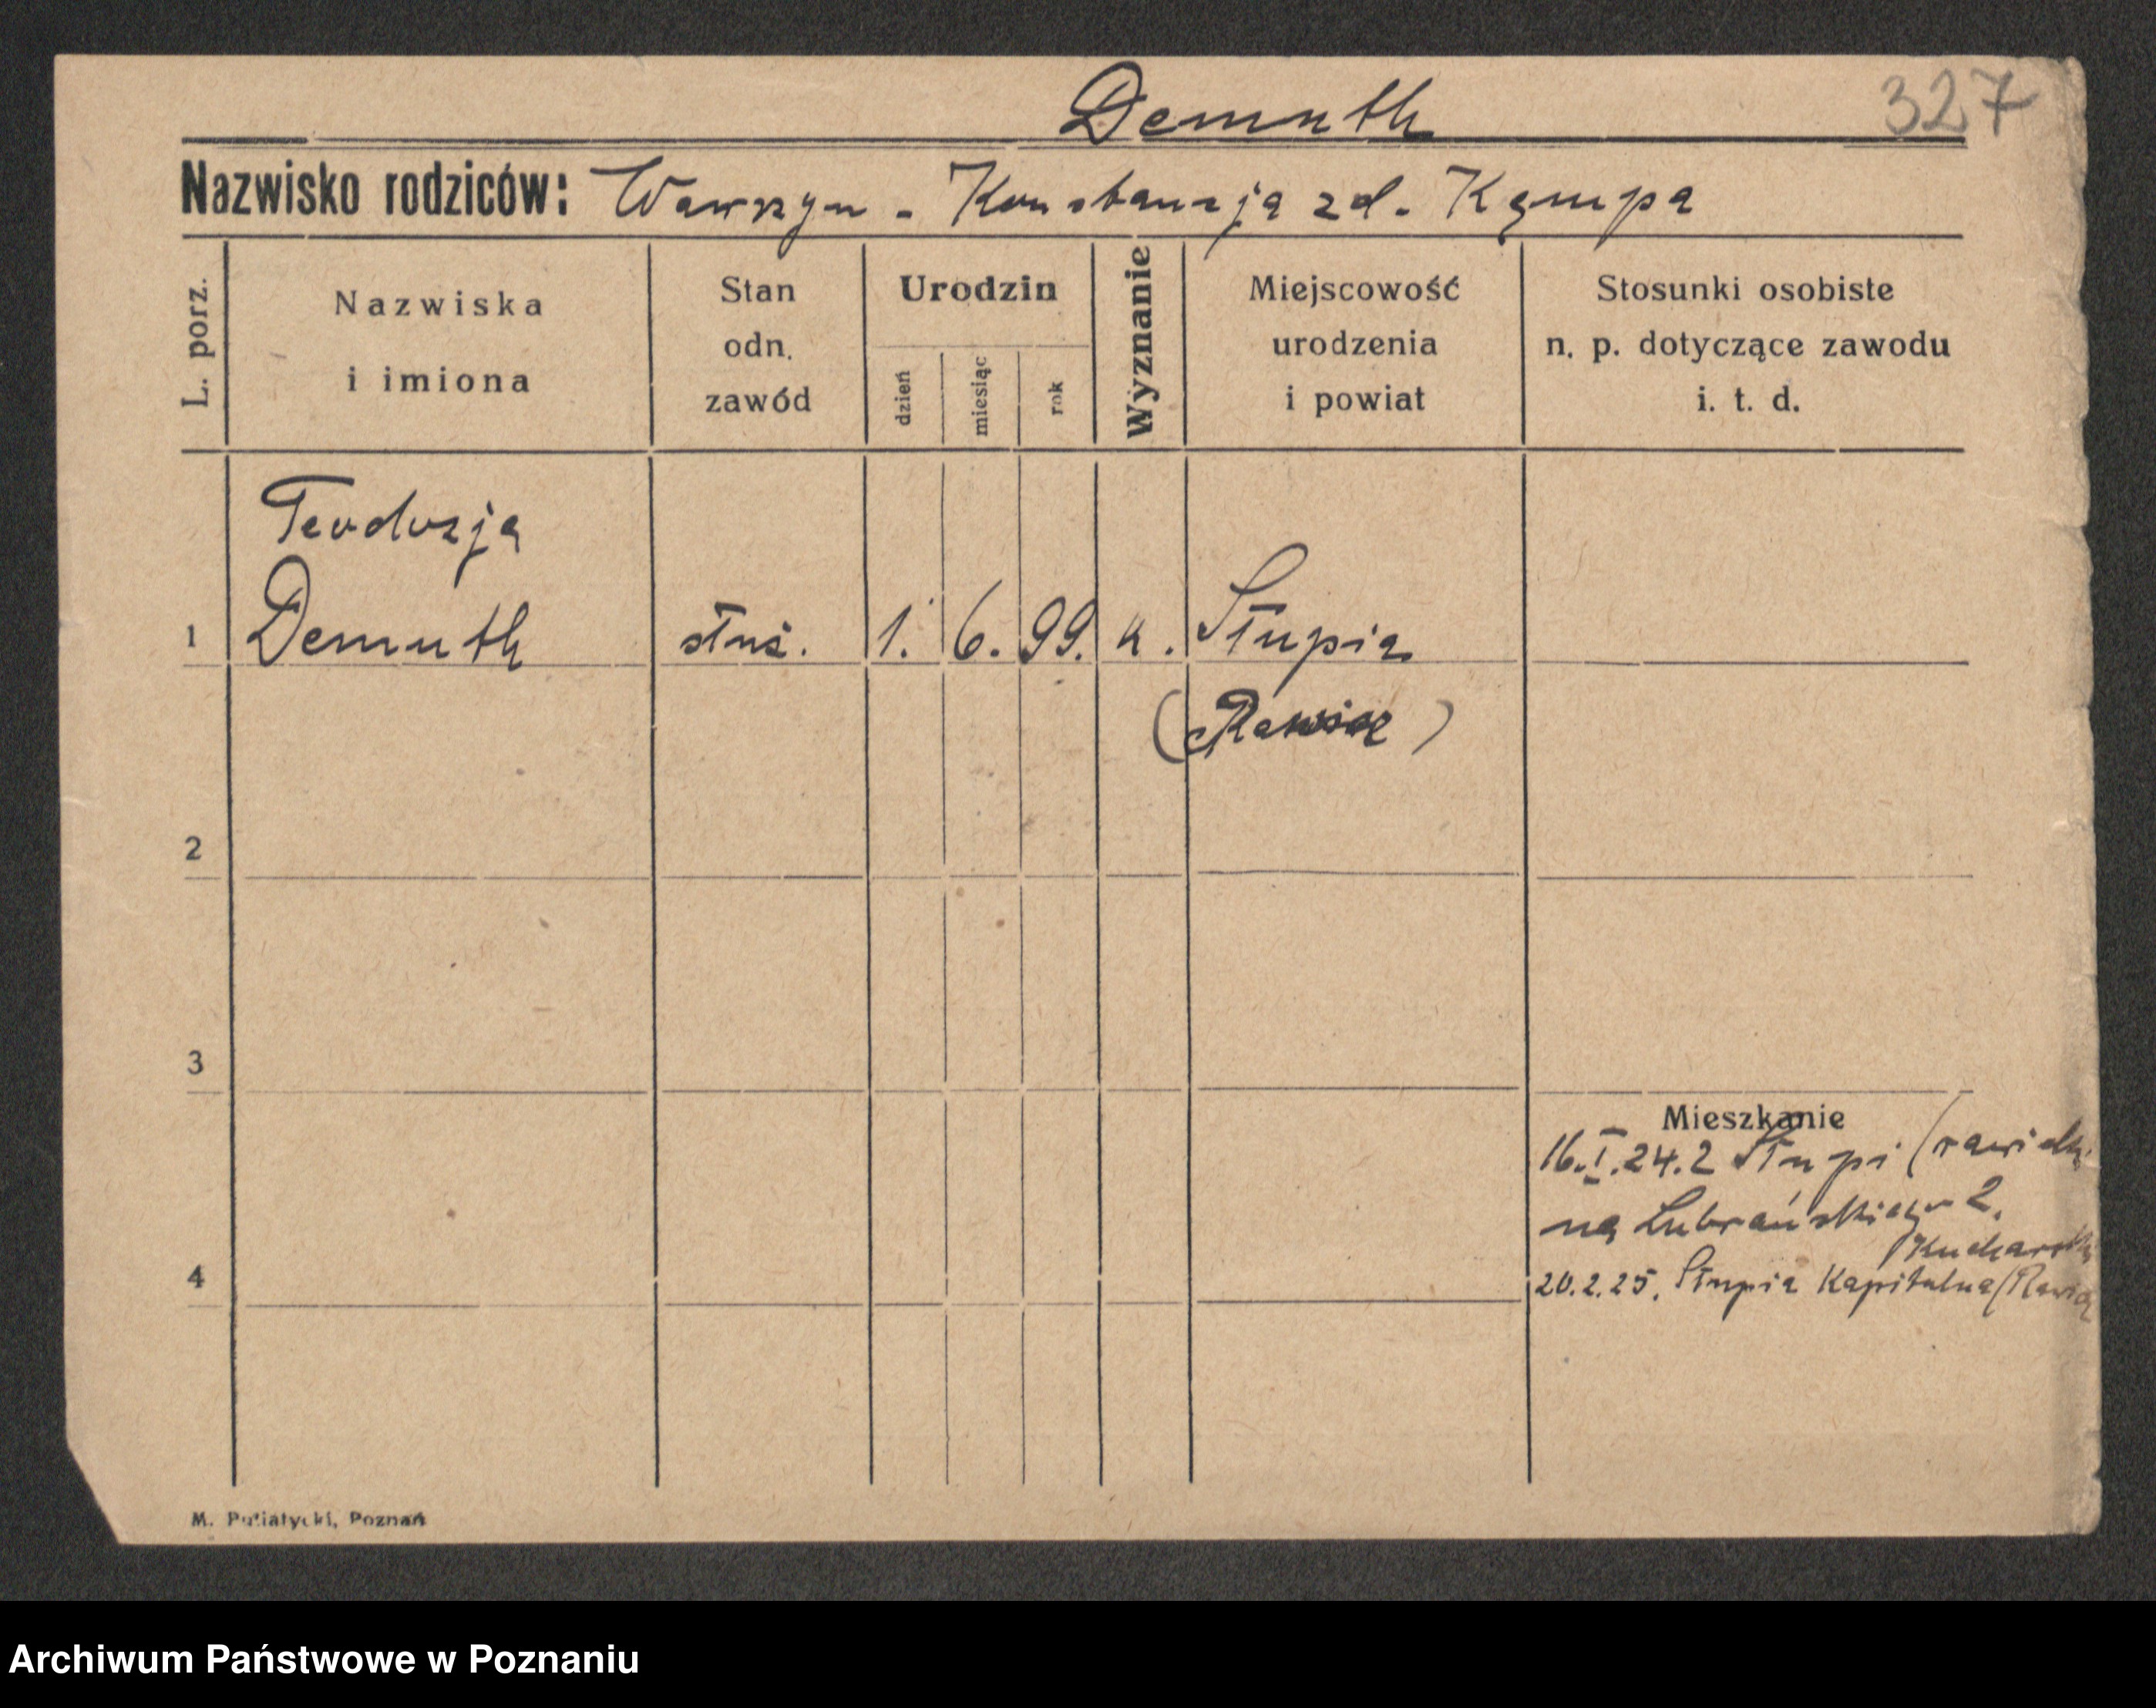 Demuth 327
Nazwisko rodziców: Wawrzyn - Konstanzja zd. Kempa
L. porz.
Nazwiska
i imiona
Stan
odn.
zawód
Urodzin
dzień
miesiąc
rok
Wyznanie
Miejscowość
urodzenia
i powiat
Stosunki osobiste
n. p. dotyczące zawodu
i. t. d.
Teodozja
1 Demuth służ. 1. 6. 99. k. Słupia
(Rawicz)
2
3
Mieszkanie
16.I.24. z Słupi (rawicki
na Lubrańskiego 2.
Kucharski
4
20.2.25. Słupia Kapitulna (Rawicz
M. Putiatycki, Poznań
Archiwum Państwowe w Poznaniu